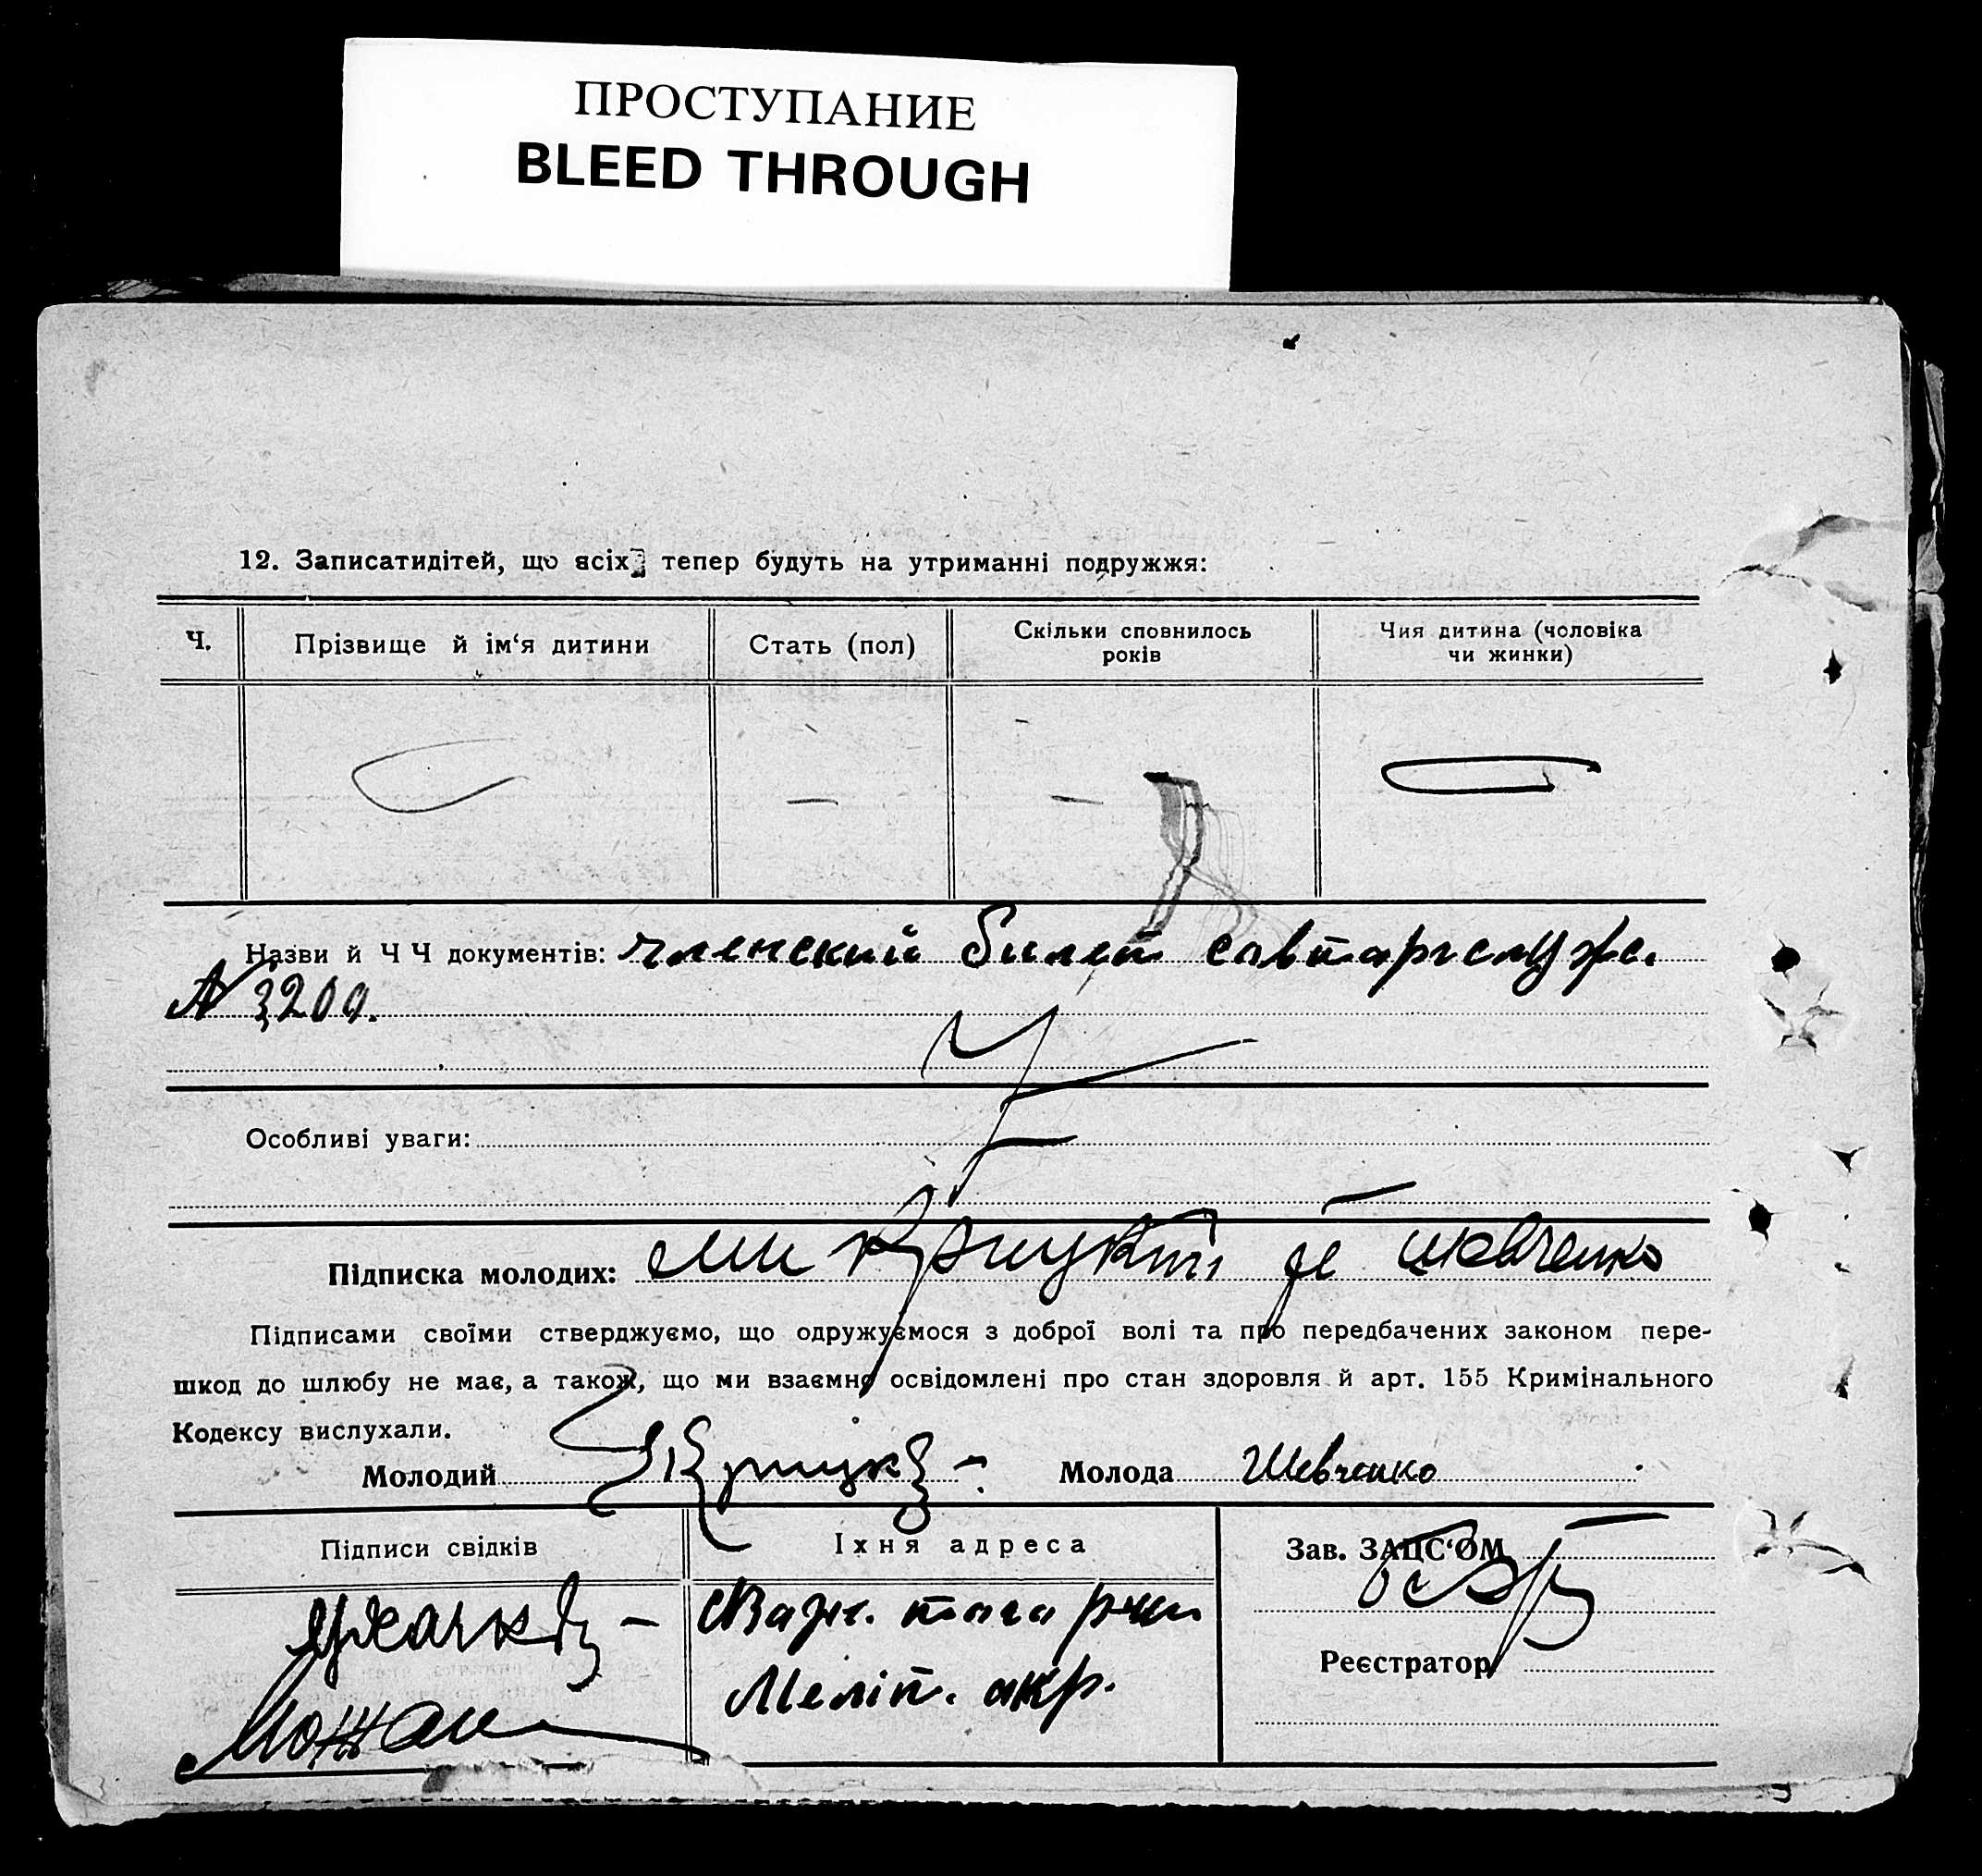 ПРОСТУПАНИЕ
BLEED THROUGH
12. Записатидітей, що всіх тепер будуть на утриманні подружжя:
Ч.
Прізвище й ім‘я дитини
Стать (пол)
Скільки сповнилось років
Чия дитина (чоловіка чи жинки)
— —
Назви й Ч Ч документів: членский билет совторгслуж.
№ 3200.
Особливі уваги:
Підписка молодих: ми й Шевченко
Підписами своїми стверджуємо, що одружуємося з доброї волі та про передбачених законом пере-
шкод до шлюбу не має, а також, що ми взаємно освідомлені про стан здоровля й арт. 155 Кримінального
Кодексу вислухали.
Молодий Молода Шевченко
Підписи свідків
Їхня адреса
Зав. ЗАПС‘ОМ
Меліт. окр.
Реєстратор